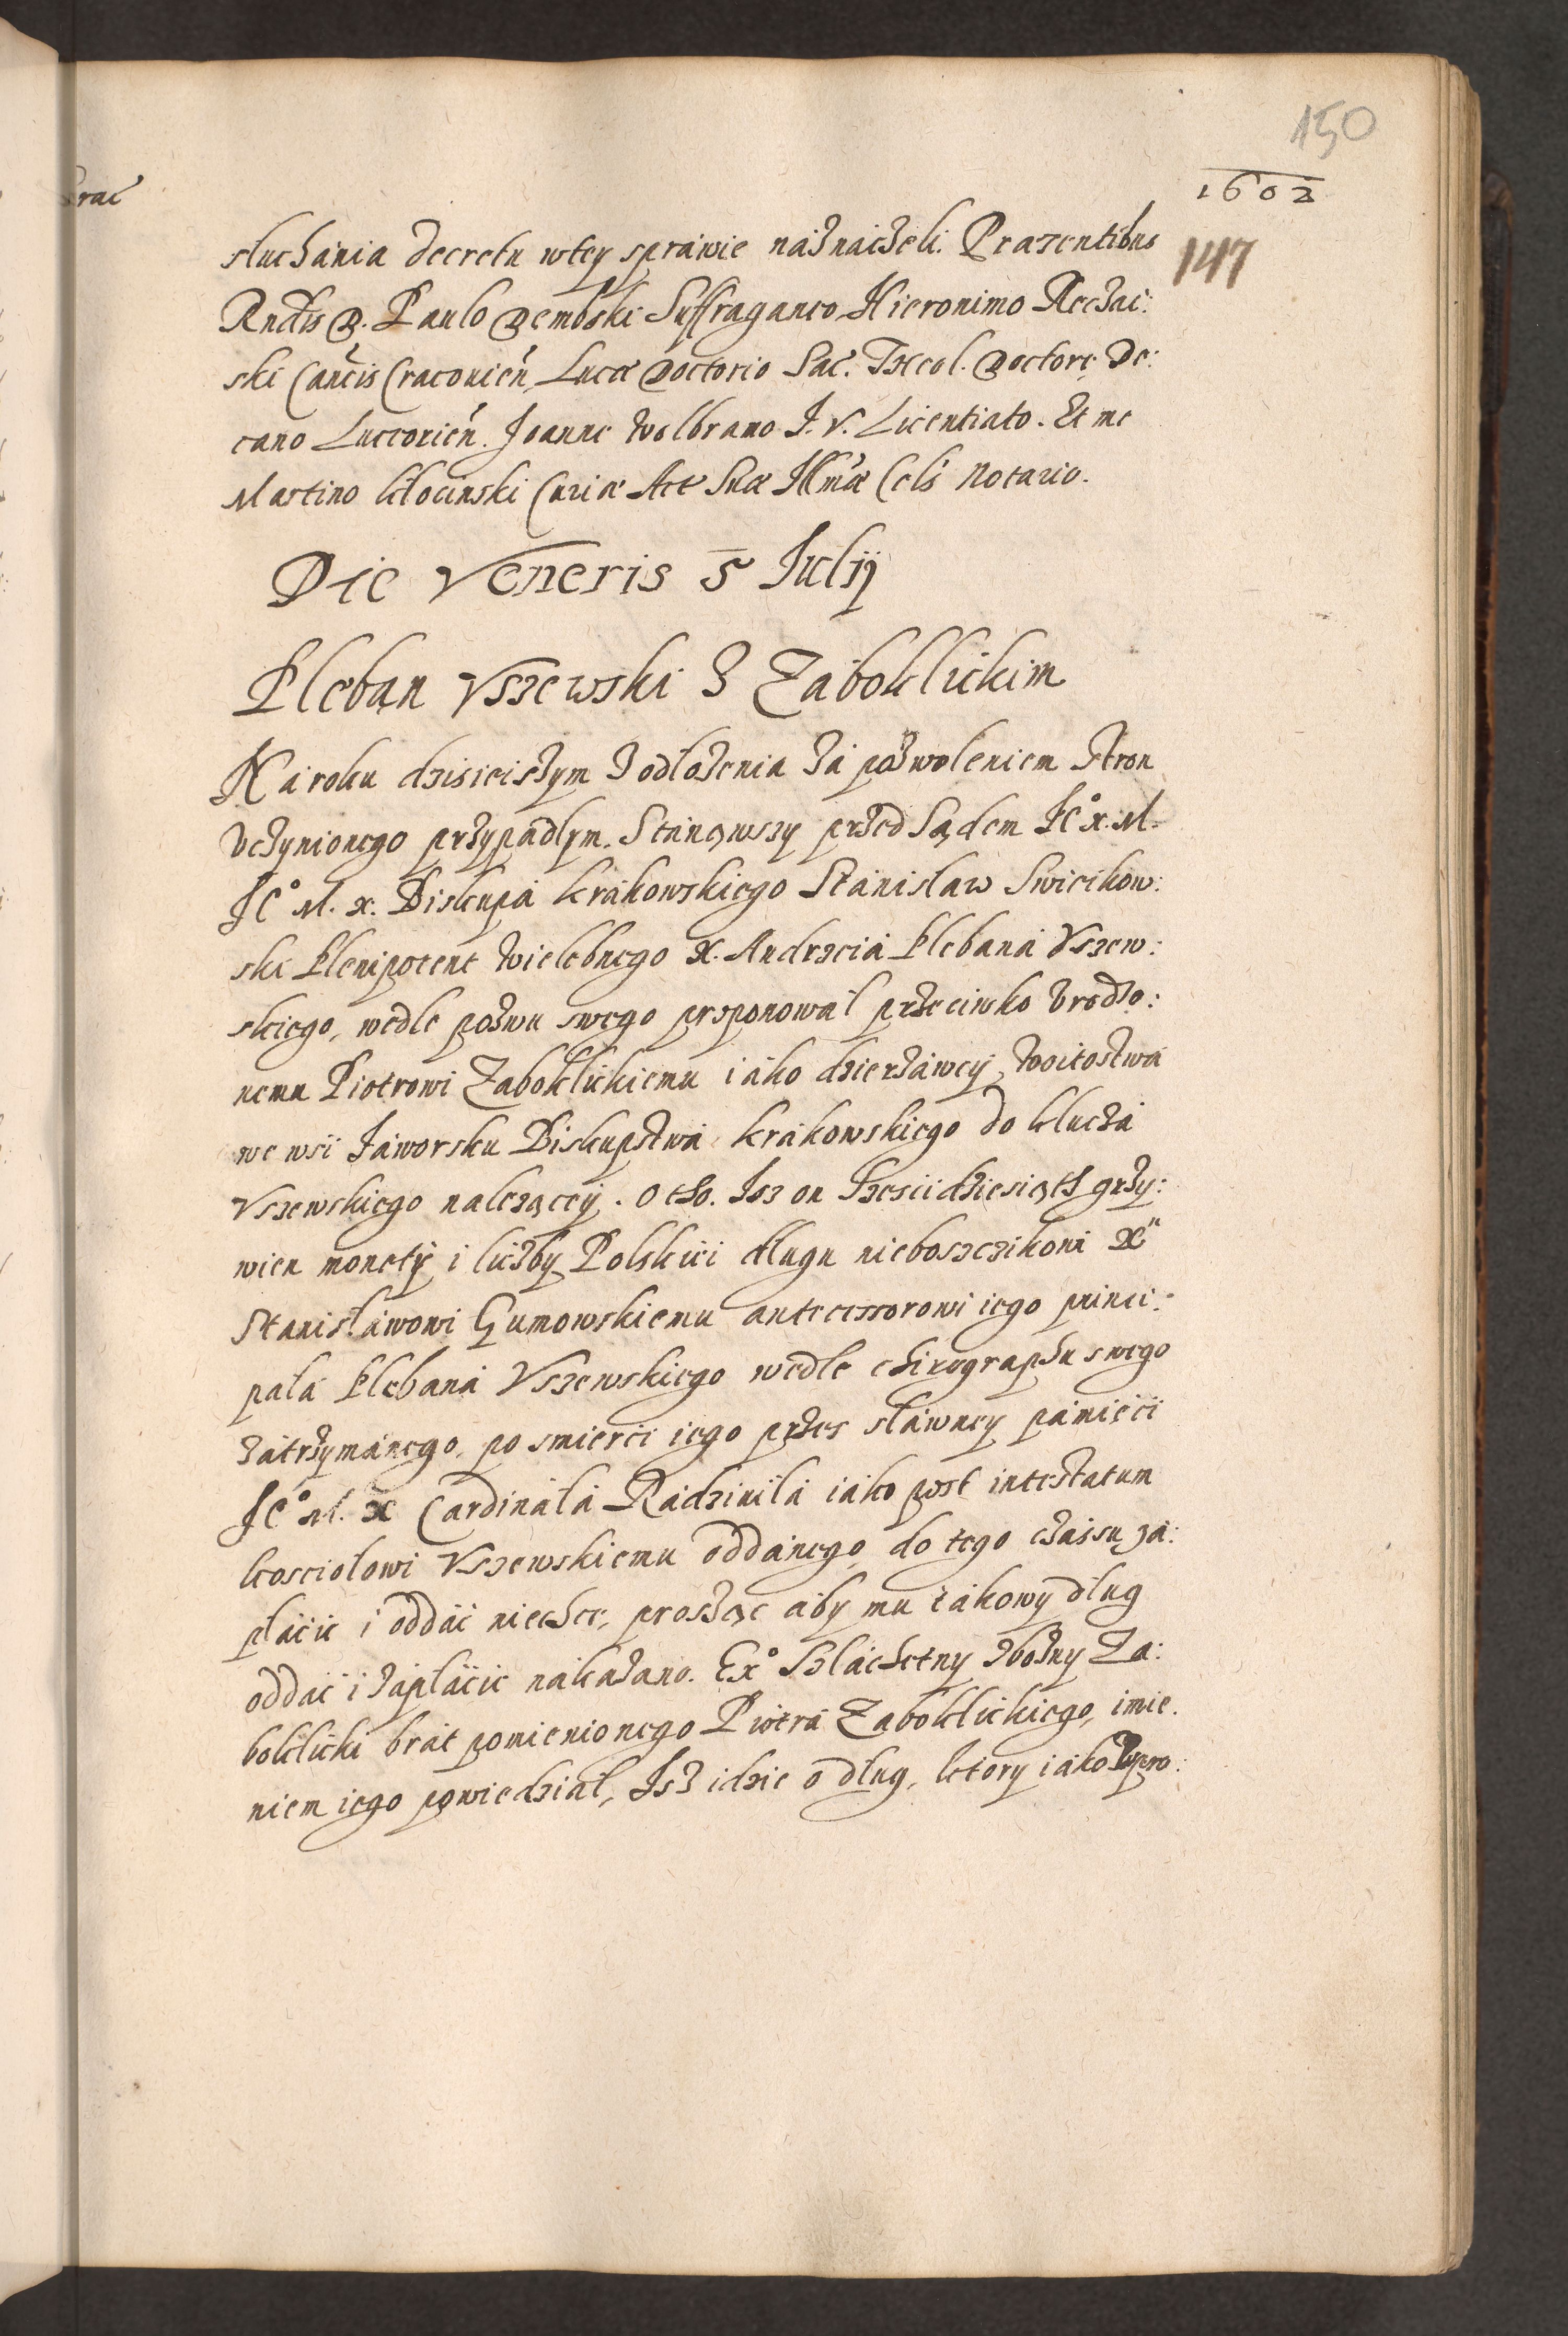 150
1602
147
rać
słuchánia decretu wtey spráwie náznáczeli. Præsentibus
Rndis D. Paulo Dembski Suffraganeo, Hieronimo Rechai:
ski Cańcis Cracouień, Lucæ Doctorio Sac. Theol. Doctore, De:
cano Lucorień. Joanne Wolbramo J. V. Licentiato. Et me
Martino Kłocinski Curiæ Act Suæ Illmæ Cels Notario.
Die Veneris 5 Julij
Pleban Vszewski z Zaboklickim
Ná roku dzisieiszym z odłożenia zá pozwoleniem stron
Vczynionego przypádłym. Stánąwszy przed Sądem Je° x. M.
Je° M. x. Biskupá Krákowskiego Stánisław Swiecikow:
ski Plenipotent Wielebnego X. Andrzeiá Plebaná Vszew:
skiego, wedle pozwu swego proponował przeciwko Vrodzo:
nemu Piotrowi Zaboklickiemu iáko dzierżáwcy Woitostwá
we wsi Jáworsku Biskupstwá Krákowskiego do kluczá
Vszewskiego należącey. O tho. Isz on Szesciidziesiąth grzy:
wien monety i liczby Polskiei długu nieboszczikowi X"
Stanisláwowi Gumowskiemu antecessorowi iego princi:
pała Plebaná Vszewskiego wedle chirographu swego
zátrzymánego, po smierci iego przes sławney pámięci
Je° M. X Cardinałá Rádziwiłá iáko post intestatum
kosciołowi Vszewskiemu oddánego, do tego czássu zá:
płácic i oddác niechce, prosząc áby mu tákowy dług
oddác i zápłácic nákazano. Ex° Szláchetny zbożny Za:
boklicki brát pomienionego Piotrá Zaboklickiego, imie.
niem iego powiedział, Isz idzie o dług, ktory iáko pro: